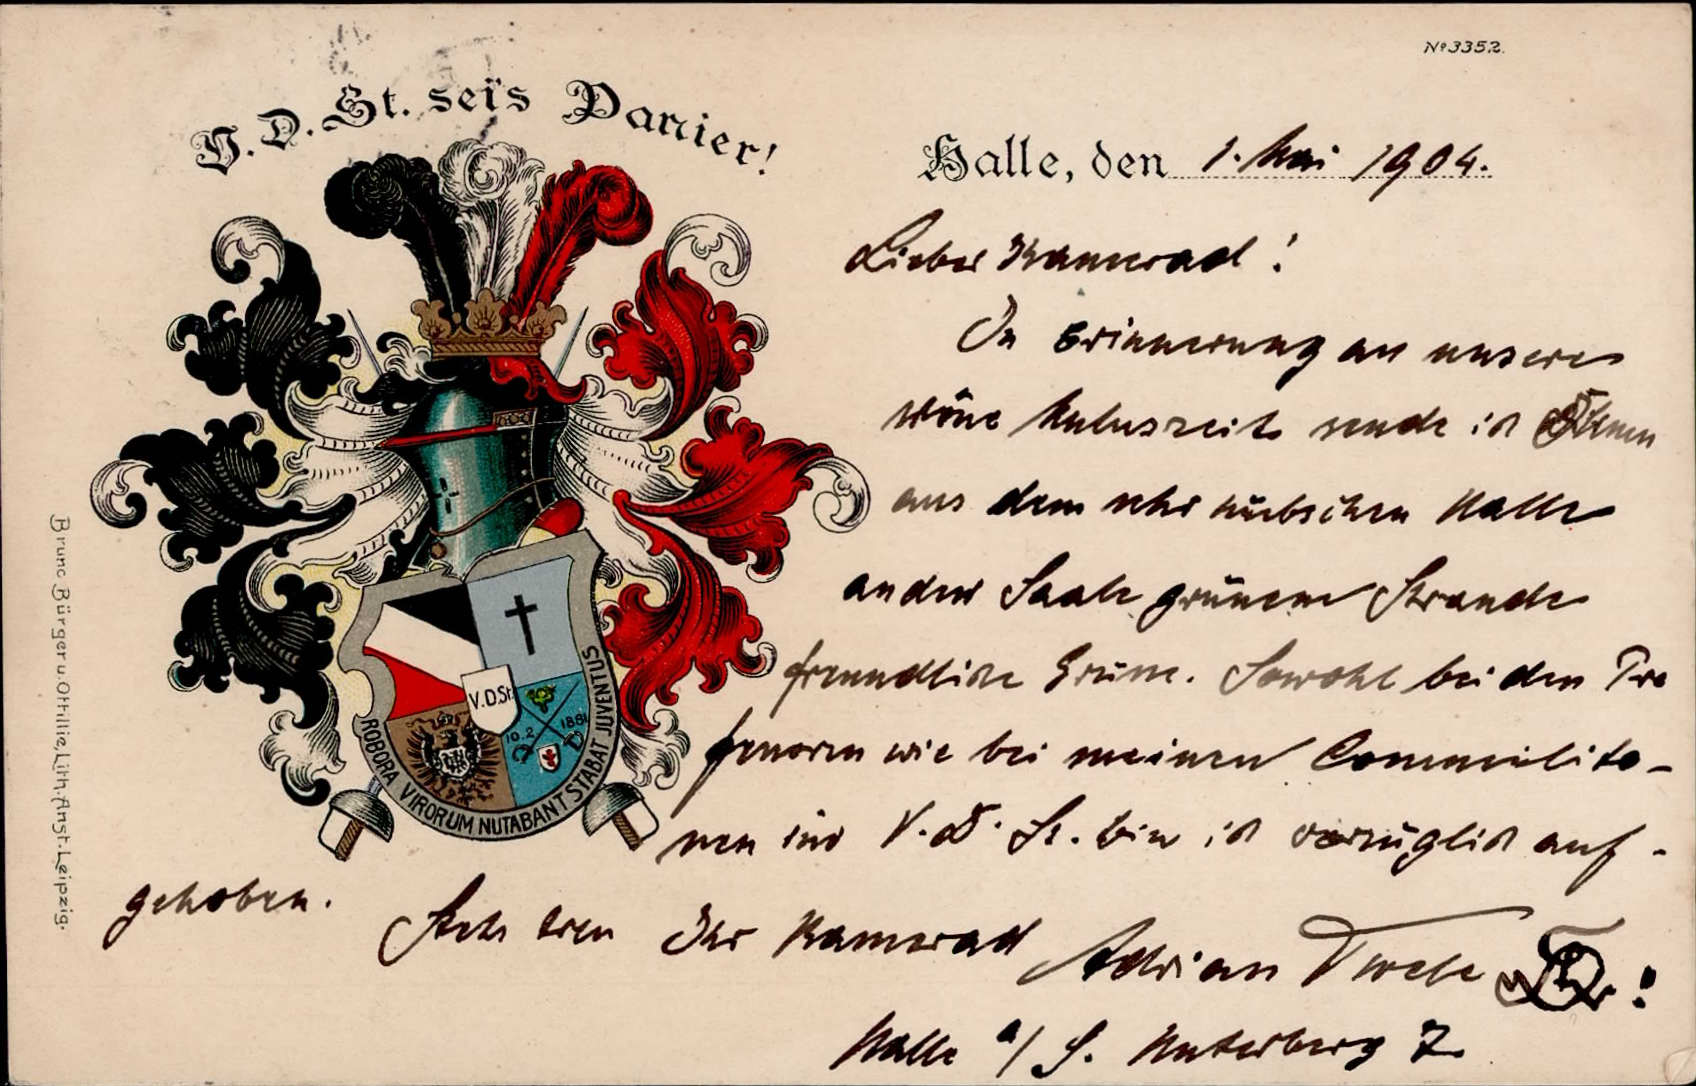 No 3352.
V. D. St. seis Panier!
Halle, den 1. Mai 1904.
Lieber Kamerad!
In Erinnerung an unsere
schöne Muluszeit sende ich Ihnen
aus dem sehr hübschen Halle
an der Saale grünem Strande
freundliche Grüsse. Sowohl bei den Pro
fessoren wie bei meinen Commilito-
nen im V. D. St. bin ich vorzüglich auf-
gehoben. Stets treu Ihr Kamerad
Adrian
Halle a/S. Unterberg 7.
V.D.St.
10.2 1881
ROBORA VIRORUM NUTABANT STABAT JUVENTUS
Bruno Bürger u. Ottillie, Lith. Anst. Leipzig.